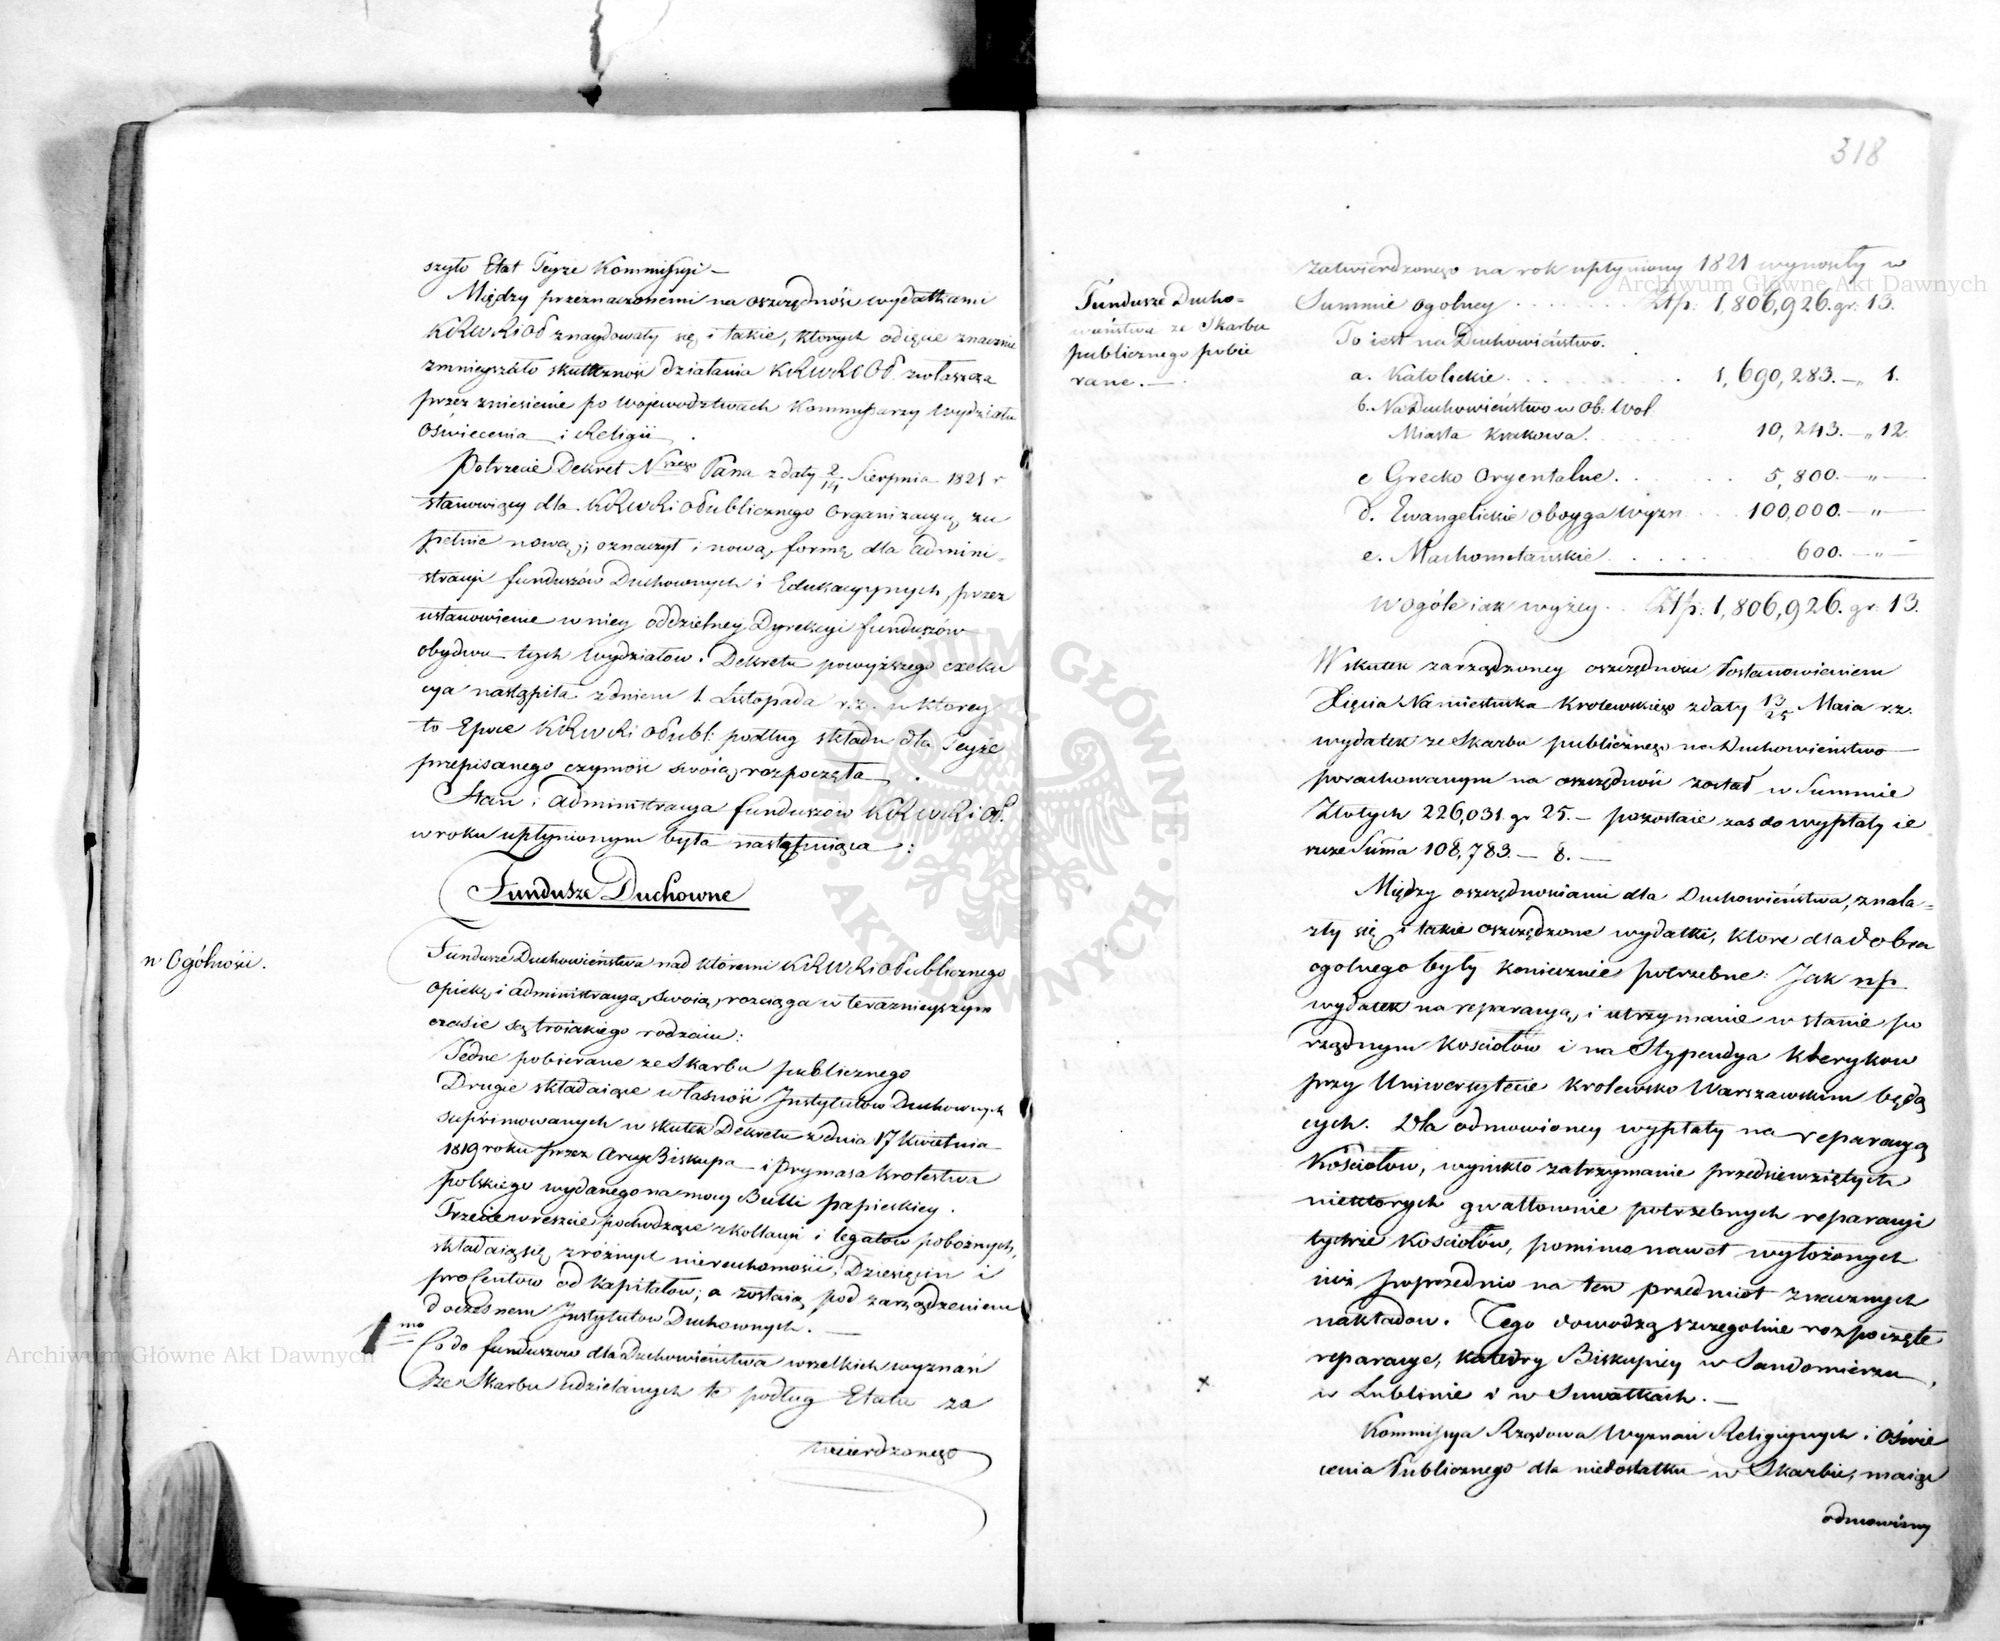 szyło Etat Teyże Kommissyi —
Między przeznaczonemi na oszczędność wydatkami
KRWRiOP znaydowały się i takie, których odięcie znacznie
zmnieyszało skuteczność działania KRWRiOP. zwłaszcza
przez zniesienie po Województwach Kommissarzy Wydziału
Oświecenia i Religii.
Potrzecie Dekret Nszego Pana z daty 2/14 Sierpnia 1821 r
stanowiący dla KRWRiOPublicznego organizacyą zu
pełnie nową, oznaczył i nową formę dla admini-
stracyi funduszów Duchownych i Edukacyynych, przez
ustanowienie w niey oddzielney Dyrekcyi funduszów
obydwu tych Wydziałow. Dekretu powyższego exeku
cya nastąpiła z dniem 1. Listopada r.z. w ktorey
to Epoce KRWRiOPubl: podług składu dla Teyże
przepisanego czynność swoię rozpoczęła.
Stan i administracya funduszow KRWRiOP.
w roku upłynionym była następuiąca:
Fundusze Duchowne
w Ogólności.
Fundusze Duchowieństwa nad któremi KRWRiOPublicznego
opiekę i administracyą swoię rozciąga w teraznieyszym
czasie są troiakiego rodzaiu:
Jedne pobierane ze Skarbu publicznego
Drugie składaiące własność Instytutow Duchownych
suprimowanych w skutek Dekretu z dnia 17 Kwietnia
1819 roku przez Arcy Biskupa i Prymasa Krolestwa
polskiego wydanego na mocy Bulli papieskiey.
Trzecie wreszcie pochodzące z kollacyi i legatow pobożnych,
składaią się z różnych nieruchomości, Dziesięcin i
procentow od kapitałow; a zostaią pod zarządzeniem
doczesnem Instytutow Duchownych. —
1mo Co do funduszow dla Duchowieństwa wszelkich wyznań
ze Skarbu udzielanych te podług Etatu za
twierdzonego
318
zatwierdzonego na rok upłyniony 1821 wynosiły w
Summie ogolney . . . . Złp: 1,806,926. gr: 13.
Fundusze Ducho-
wieństwa ze Skarbu
publicznego pobie
rane. —
To iest na Duchowieństwo.
a. Katolickie . . . . . . 1,690,283. — „ 1.
b. Na Duchowieństwo w Ob: Wol.
Miasta Krakowa . . . . 10,243. — „ 12.
c Grecko Oryentalne . . . . 5,800. — „ —
d. Ewangelickie oboyga Wyzn . . . 100,000. — „ —
e. Machometańskie . . . . . . 600. — „ —
W ogóle iak wyżey . . Złp: 1,806,926. gr: 13.
W skutek zarządzoney oszczędności Postanowieniem
Xięcia Namiestnika Krolewskiego z daty 13/25 Maia r.z.
wydatek ze Skarbu publicznego na Duchowieństwo
porachowanym na oszczędność został w Summie
Złotych 226,031. gr 25. — pozostaie zas do wypłaty ie
szcze Suma 108,783. — 8. —
Między oszczędnosciami dla Duchowieństwa, znala-
zły się i takie oszczędzone wydatki, ktore dla dobra
ogolnego były koniecznie potrzebne: Jak np
wydatek na reparacyą, i utrzymanie w stanie po
rządnym Kosciołów i na Stypendya Klerykow
przy Uniwersytecie Krolewsko Warszawskim będą
cych. Dla odmowioney wypłaty na reparacyą
Kościołow, wynikło zatrzymanie przedsiewziętych
niektorych gwałtownie potrzebnych reparacyi
tychże Kosciołów, pomimo nawet wyłożonych
iuż poprzednio na ten przedmiot znacznych
nakładow. Tego dowodzą szczegolnie rozpoczęte
reparacye, katedry Biskupiey w Sandomierzu,
w Lublinie i w Suwałkach. —
Kommissya Rządowa Wyznań Religiynych i Oświe
cenia Publicznego dla niedostatku w Skarbie, maiąc
odmowiony